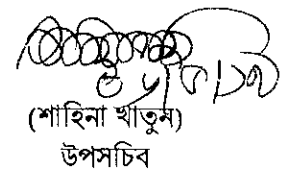 (শাহিনা খাতুন)
উপসচিব